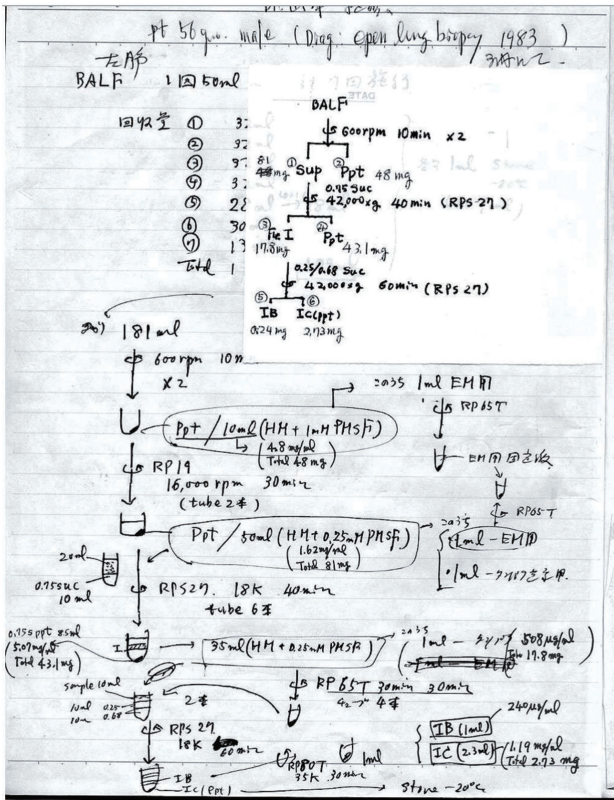 pt 56 y.o. male (Diag: open lung biopsy 1983)
BALF 1回 50ml
回収量 ① 3
② 3
③ 3
④ 3
⑤ 28
⑥ 30
⑦ 13
Total 1
BALF
600rpm 10min ×2
① Sup ② Ppt 48mg
81
0.75 Suc
42,000xg 40min (RPS27)
③ Fr I ④ Ppt
17.8mg 43.1mg
0.25/0.68 Suc
42,000xg 60min (RPS27)
⑤ ⑥
IB IC(ppt)
0.24mg 2.73mg
181ml
600rpm 10m
×2
このうち 1ml EM用
RP65T
Ppt / 10ml (HM + 1mM PMSF)
(4.8mg/ml
Total 48mg)
EM用固定液
RP19
16,000rpm 30min
(tube 2本)
RP65T
Ppt / 50ml (HM + 0.25mM PMSF)
(1.62mg/ml
Total 81mg)
このうち
1ml - EM用
1ml - タンパク定量用
20ml
0.75suc
10ml
RPS27. 18K 40min
tube 6本
0.75S ppt 8.5ml
(5.07mg/ml
Total 43.1mg)
I
35ml (HM + 0.25mM PMSF)
このうち
1ml - タンパク 508μg/ml
Total 17.8mg
1ml - EM用
sample 10ml
10ml 0.25
10ml 0.68
2本
RP65T 30min 30min
4本
RPS27
18K 60min
RP80T
35K 30min
1ml
IB (1ml) 240μg/ml
IC (2.3ml) 1.19mg/ml
Total 2.73mg
IB
IC (Ppt)
Store -20°C